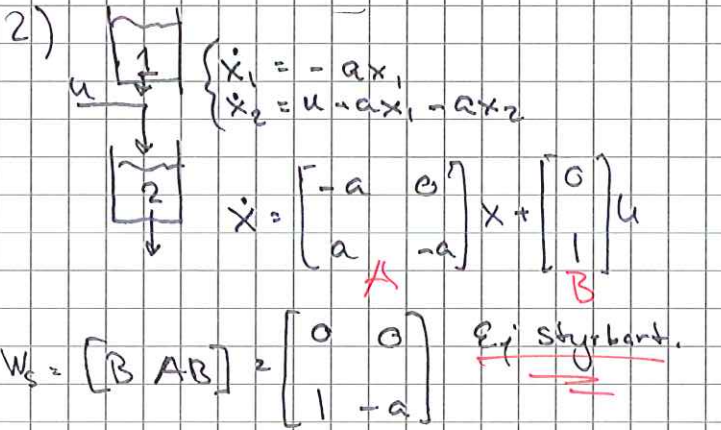 2)
1
u
2
{ẋ₁ = - ax₁
ẋ₂ = u + ax₁ - ax₂
ẋ = [-a 0; a -a] x + [0; 1] u
A B
Wₛ = [B AB] = [0 0; 1 -a] Ej styrbart.